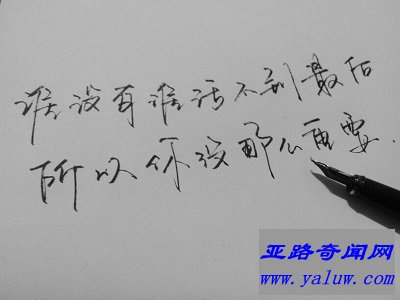 谁没有谁活不到最后
所以你没那么重要.
亚路奇闻网
www.yaluw.com